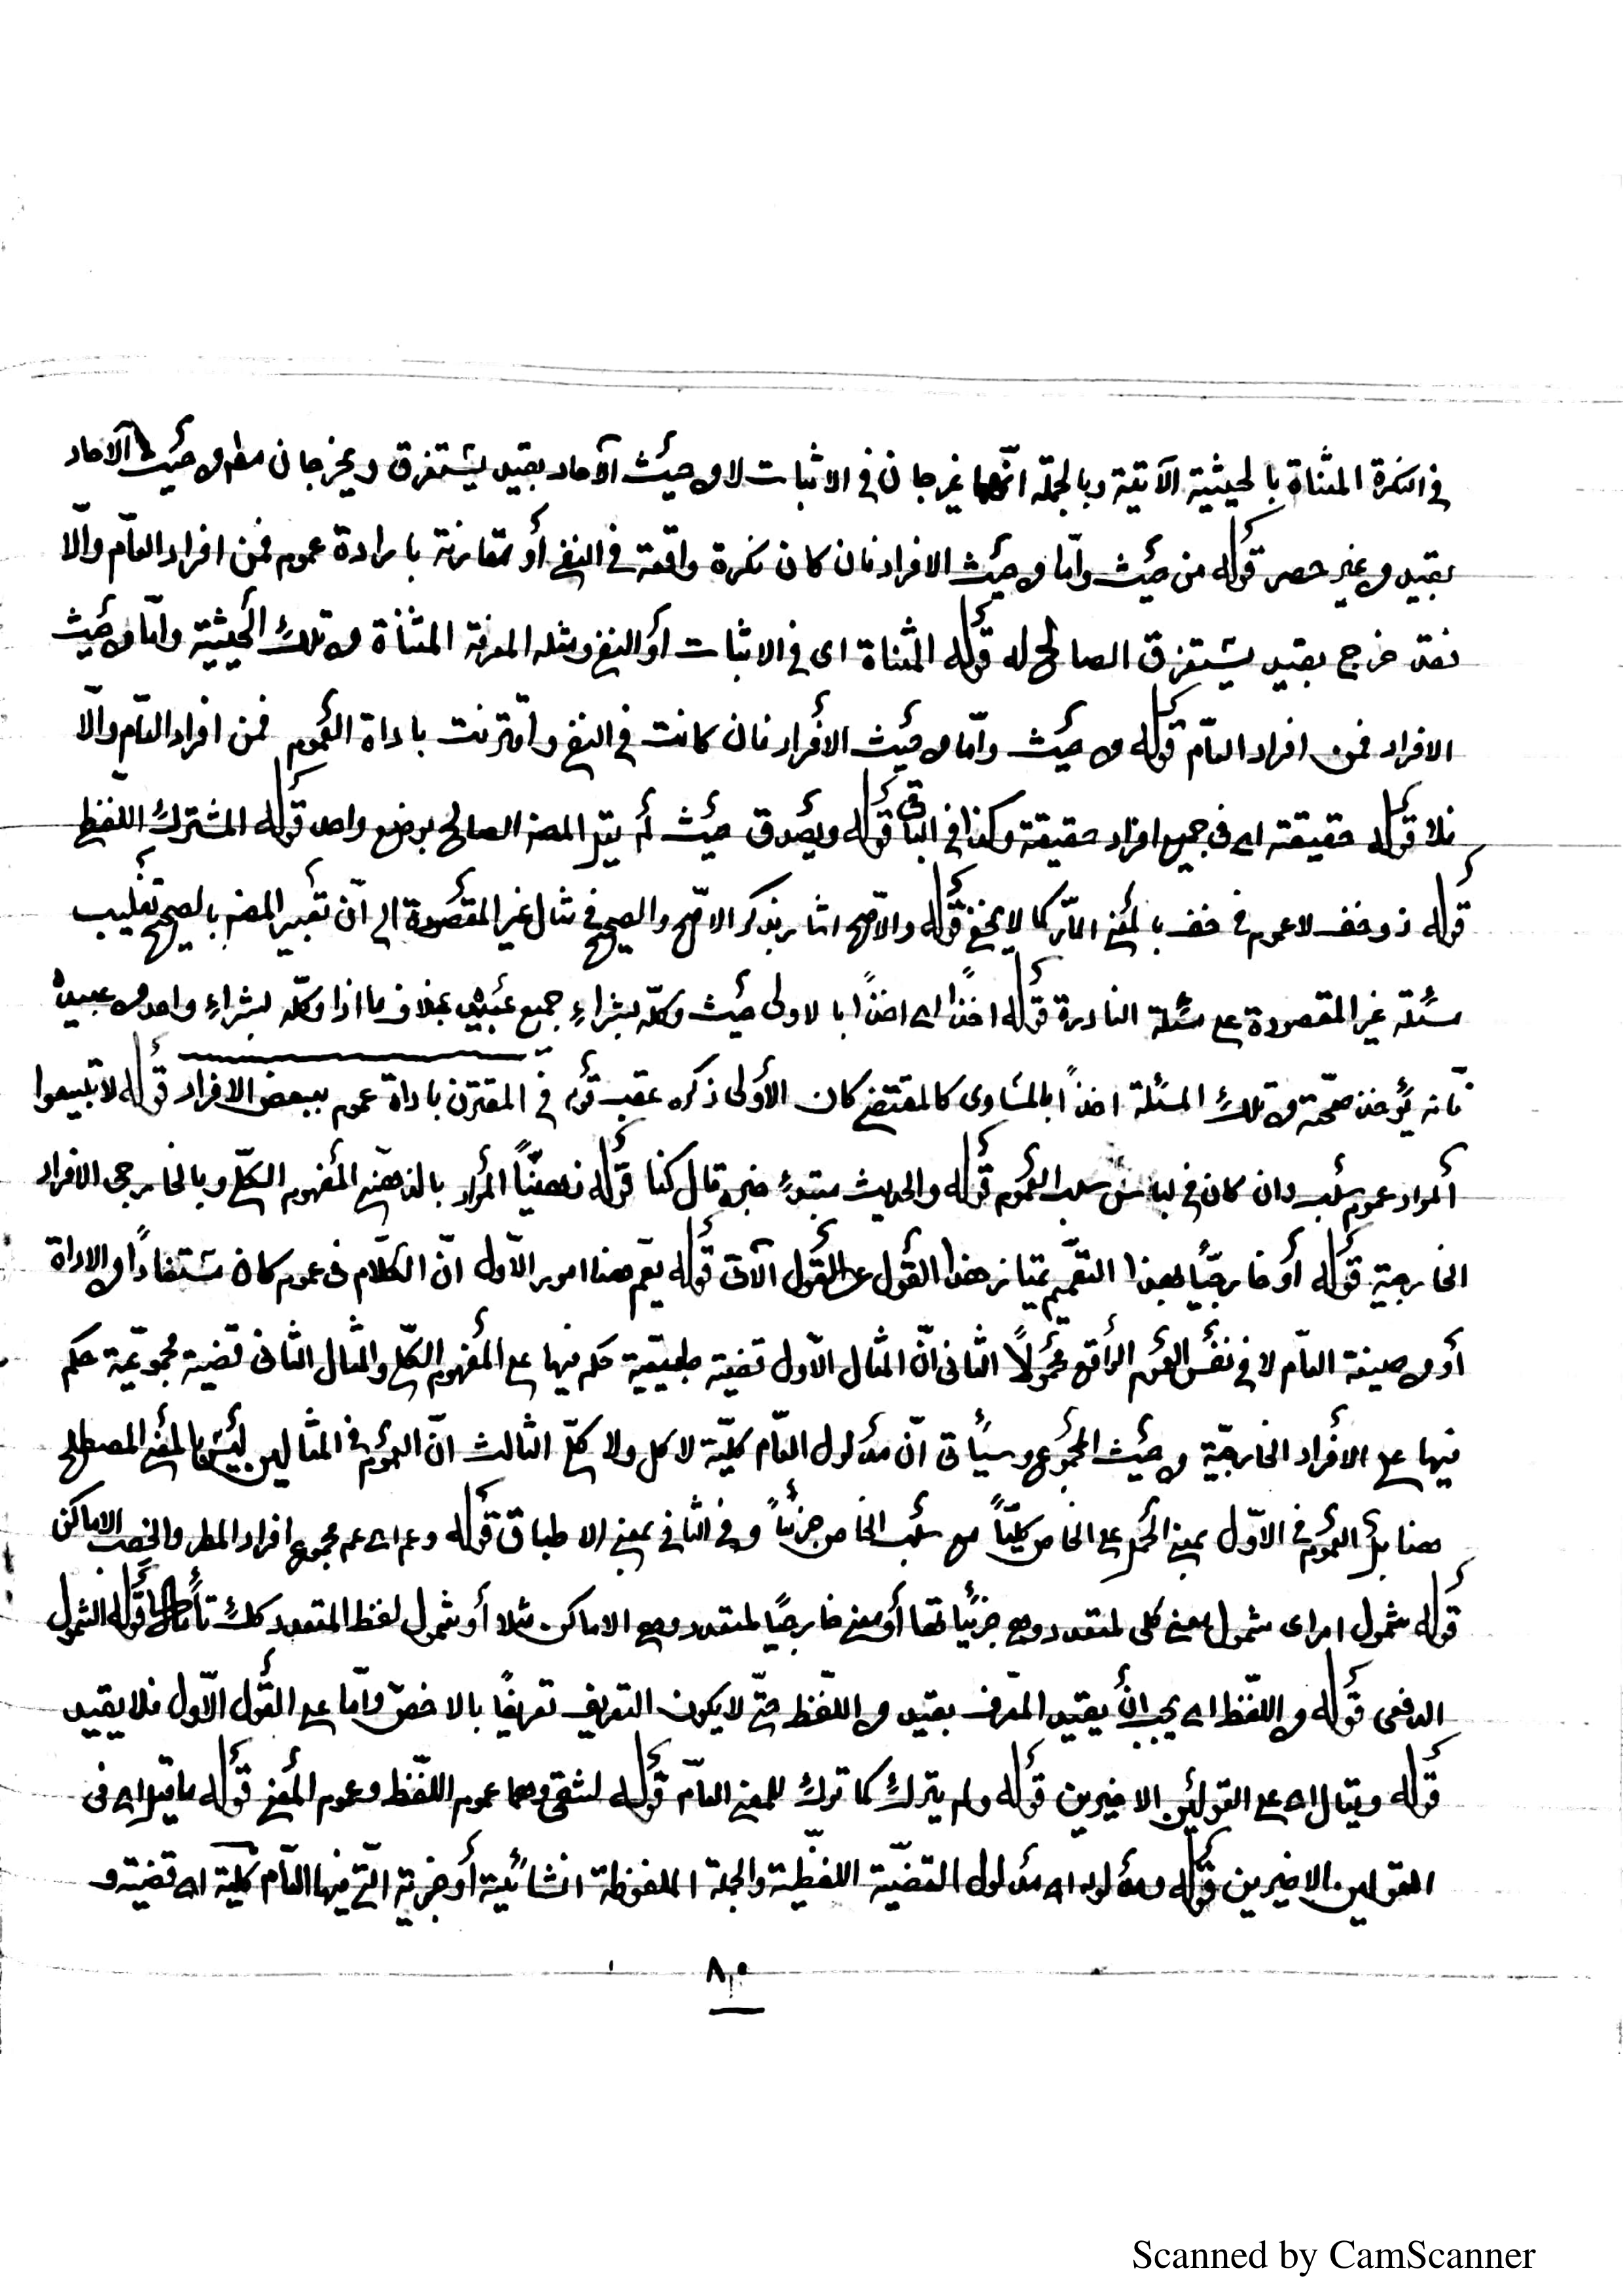 في النكرة المثناة بالحيثية الآتية وبالجملة انّهما يخرجان في الاثبات لا من حيث الآحاد بقيد يستغرق ويخرجان مط من حيث الآحاد
بقيد من غير حصر قوله من حيث وامّا من حيث الافراد فان كان نكرة واقعة في النفي أو مقارنة بارادة عموم فمن افراد العامّ والّا
فقد خرج بقيد يستغرق الصالح له قوله المثناة اى في الاثبات أو النفي ومثله المعرفة المثناة من تلك الحيثية وامّا من حيث
الافراد فمن افراد العامّ قوله من حيث وامّا من حيث الأفراد فان كانت في النفي واقترنت باداة العموم فمن افراد العامّ والّا
فلا قوله حقيقته اى فى جميع افراد حقيقة وكذا في الباقى قوله ويصدق حيث لم يقل المصنف الصالح بوضع واحد قوله المشترك اللفظ
قوله ذو خف لا عموم في خف بالمعنى المارّ كما لا يخفى قوله والاصّح اشار بذكر الاصّح والصحيح في مثال غير المقصودة الى انّ تعبير المصنف بالصحيح تغليب
مسئلة غير المقصودة على مسئلة النادرة قوله اخذا اى اخذًا بالاولى حيث وكّله بشراءِ جميع عبيده بخلاف ما اذا وكّله بشراءِ واحد من عبيده
فانه يؤخذ صحّته من تلك المسئلة اخذًا بالمساوى كالمقتضى كان الأولى ذكره عقب قوله في المقترن باداة عموم ببعض الافراد قوله لا تبيعوا
المراد عموم سلب وان كان في لباس سلب العموم قوله والحديث مبتدءٌ خبره قال كنا قوله ذهنيّاً المراد بالذهنى المفهوم الكلّى وبالخارجى الافراد
الخارجية قوله أو خارجيّاً بهذا التعميم يمتاز هذا القول عن القول الآتى قوله يعم هنا امور الاول انّ الكلام فى عموم كان مستفادًا من الاداة
أو من صيغة العامّ لا في نفس العموم الواقع محمولًا الثانى انّ المثال الاوّل قضية طبيعية حكم فيها على المفهوم الكلّى والمثال الثانى قضية مجموعيّة حكم
فيها على الأفراد الخارجيّة من حيث المجموع وسيأتى انّ مدلول العامّ كليّة لا كل ولا كلّى الثالث انّ العموم في المثالين ليس بالمعنى المصطلح
هنا بل العموم في الاوّل بمعنى الحمل على الخاص كليّاً مع سلب الخاص جزئياً وفي الثانى بمعنى الاطباق قوله وعم اى عم مجموع افراد المطر والخصب الاماكن
قوله شمول امر اى شمول معنى كلى لمتعدد وهى جزئياتها أو معنى خارجيّاً لمتعدد وهى الاماكن مثلا أو شمول لفظ المتعدد كذلك قوله الشمول
الدفعى قوله من اللفظ اى يجب انّ يقيّد المعّرف بقيد من اللفظ حتى لا يكون التعريف تعريفًا بالاخصّ وامّا على القول الاول فلا يقيد
قوله ويقال اى على القولين الاخيرين قوله ولم يترك كما ترك للمعنى العامّ قوله لشقى وهما عموم اللفظ وعموم المعنى قوله ما قيل اى فى
القولين الاخيرين قوله ومدلوله اى مدلول القضيّة اللفظية والجملة الملفوظة انشائية أو خبرية التى فيها العامّ كلية اى قضية و
Scanned by CamScanner